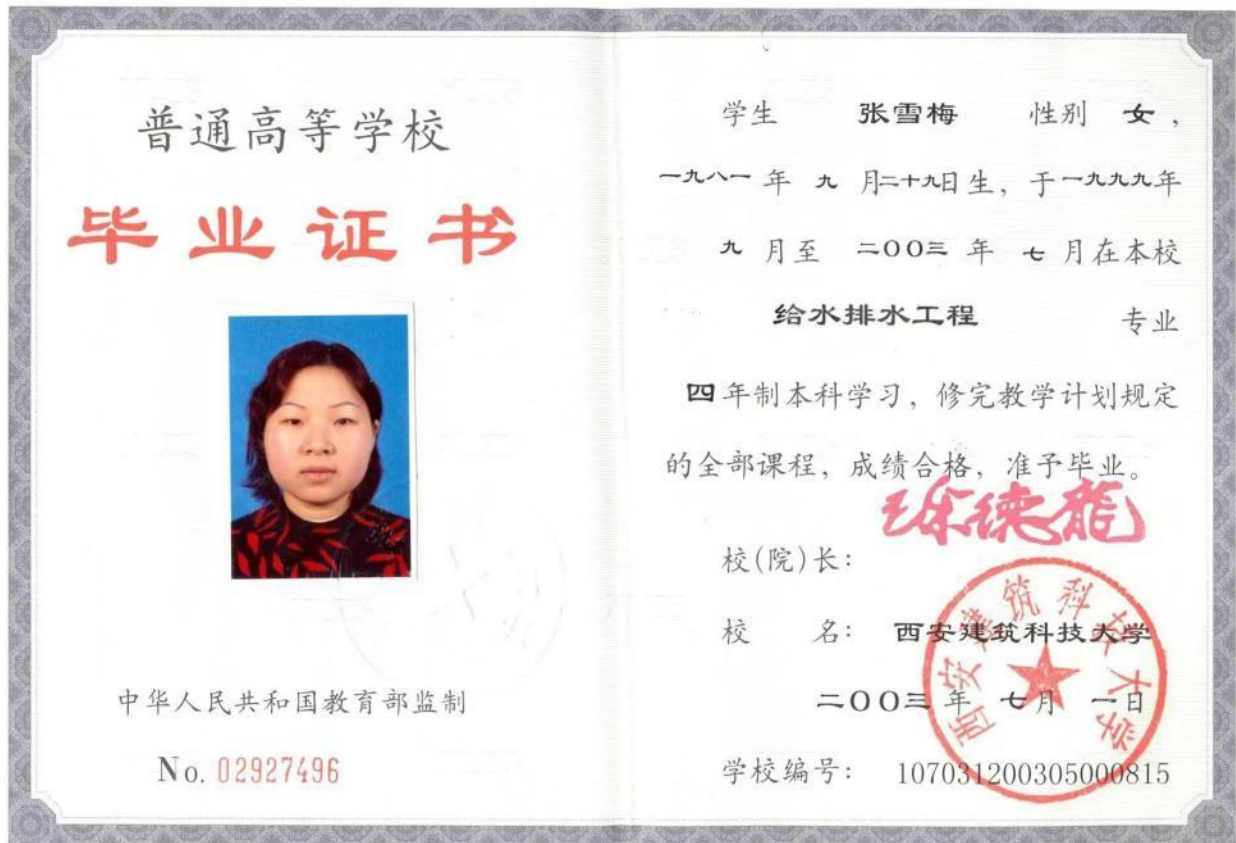 普通高等学校
毕业证书
中华人民共和国教育部监制
No. 02927496
学生 张雪梅 性别 女，
一九八一 年 九 月二十九日生，于一九九九年
九 月至 二〇〇三 年 七 月在本校
给水排水工程 专业
四年制本科学习，修完教学计划规定
的全部课程，成绩合格，准予毕业。
校(院)长：
校 名： 西安建筑科技大学
二〇〇三 年 七月 一日
学校编号： 107031200305000815
西安建筑科技大学